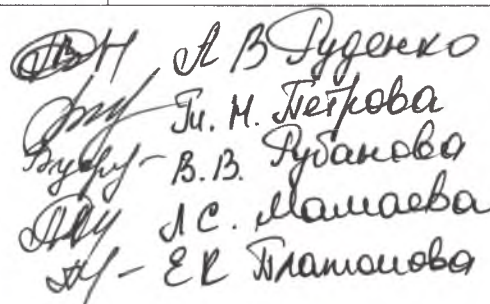 А В Руденко
Т. М. Петрова
В.В. Рубанова
Л С. Мамаева
Е К Платонова